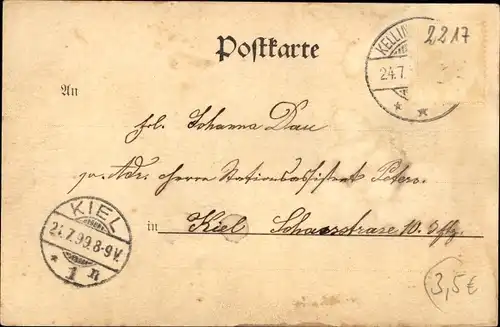 2217
Postkarte
KELLIN
24.7.
* *
An
frl. Johanna Dau
p. Adr. Herrn Stationsassistent Peters.
in Kiel Scharrstrase 10. 3 Etg.
KIEL
24.7.99.8-9V.
* 1 n
3,5€